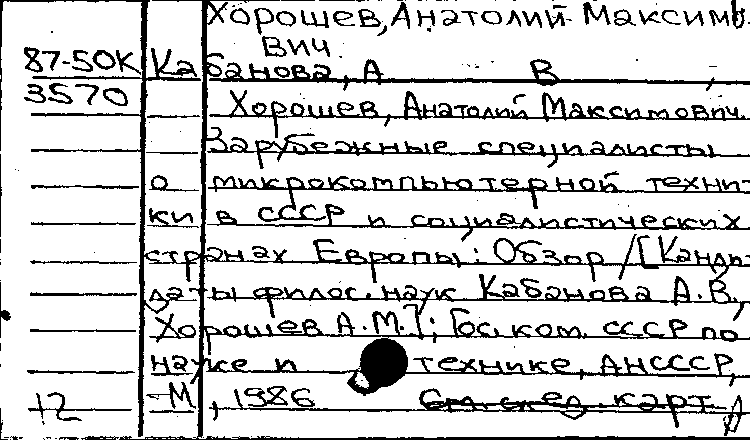 Хорошев, Анатолий Максимо-
вич.
87-50К Кабанова, А В ,
3570 Хорошев, Анатолий Максимович.
Зарубежные специалисты
о микрокомпьютерной техни-
ки в СССР и социалистических
странах Европы: Обзор / [Канди-
даты филос. наук Кабанова А.В.,
Хорошев А.М.]; Гос. ком. СССР по
науке и технике, АНСССР,
12 -М, 1986 карт.